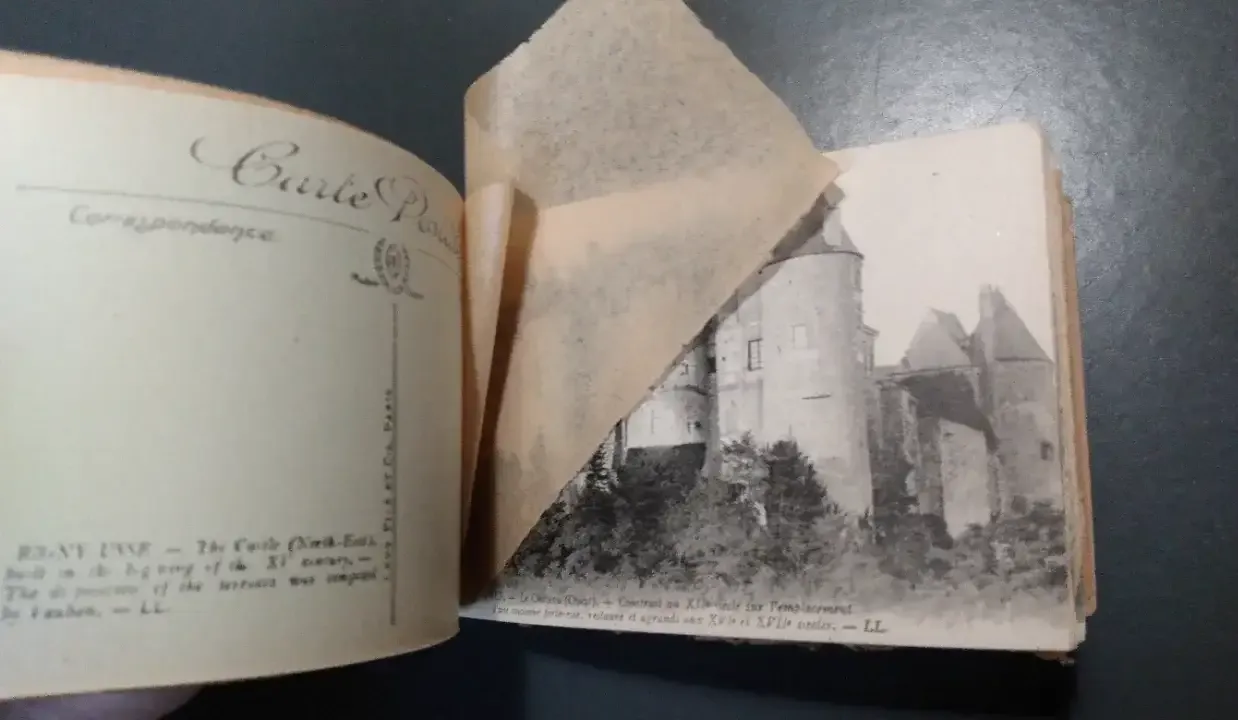 Carte Postale
Correspondance
LEVY FILS ET CIE, PARIS
RIGNY USSÉ — The Castle (North-East),
built in the beginning of the XIe century. —
The disposition of the terraces was composed
by Vauban. — LL
— Le Château (Ouest). — Construit au XIIe siècle sur l'emplacement
restauré et agrandi aux XVIe et XVIIe siècles. — LL